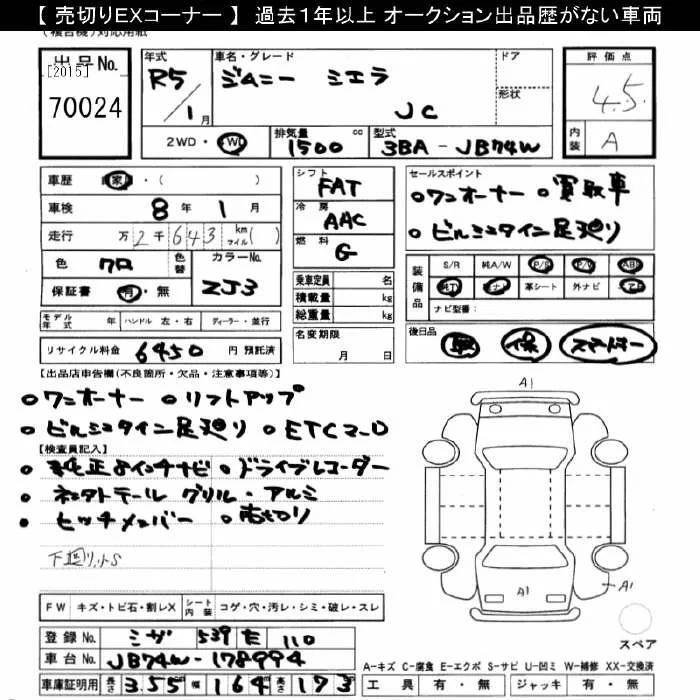 【 売切りEXコーナー 】 過去1年以上 オークション出品歴がない車両
(複合機)対応用紙
出品No.
[2015]
70024
年式
R5/1月
車名・グレード
ジムニー シエラ
JC
ドア
形状
評価点
4.5
内装
A
2WD・4WD
排気量
1500 cc
型式
3BA-JB74W
車歴
自家・( )
車検
8年 1月
走行
万2千643 km マイル( )
色
クロ
色替
カラーNo.
ZJ3
保証書
有・無
シフト
FAT
冷房
AAC
燃料
G
乗車定員 名
積載量 kg
総重量 kg
セールスポイント
○ワンオーナー ○買取車
○ビルシュタイン足廻り
装備品
S/R 純A/W P/S P/W ABS
純TV 純ナビ 革シート 外ナビ エアB
ナビ型番:
モデル年式 年 ハンドル 左・右 ディーラー・並行
名変期限
月 日
後日品
取 保 スマートキー
リサイクル料金 6450 円 預託済
【出品店申告欄(不良箇所・欠品・注意事項等)】
○ワンオーナー ○リフトアップ
○ビルシュタイン足廻り ○ETC2.0
【検査員記入】
○純正8インチナビ ○ドライブレコーダー
○ネオクトテール グリル・アルミ
○ヒッチメンバー ○売切り
下回りサビS
FW キズ・トビ石・割レX シート内装 コゲ・穴・汚レ・シミ・破レ・スレ
A1
A1
A1
スペア
登録No. ミザ 539 E 110
車台No. JB74W-178994
車庫証明用 長さ 3.55 幅 164 高さ 173
A-キズ C-腐食 E-エクボ S-サビ U-凹ミ W-補修 XX-交換済
工具 有・無 ジャッキ 有・無